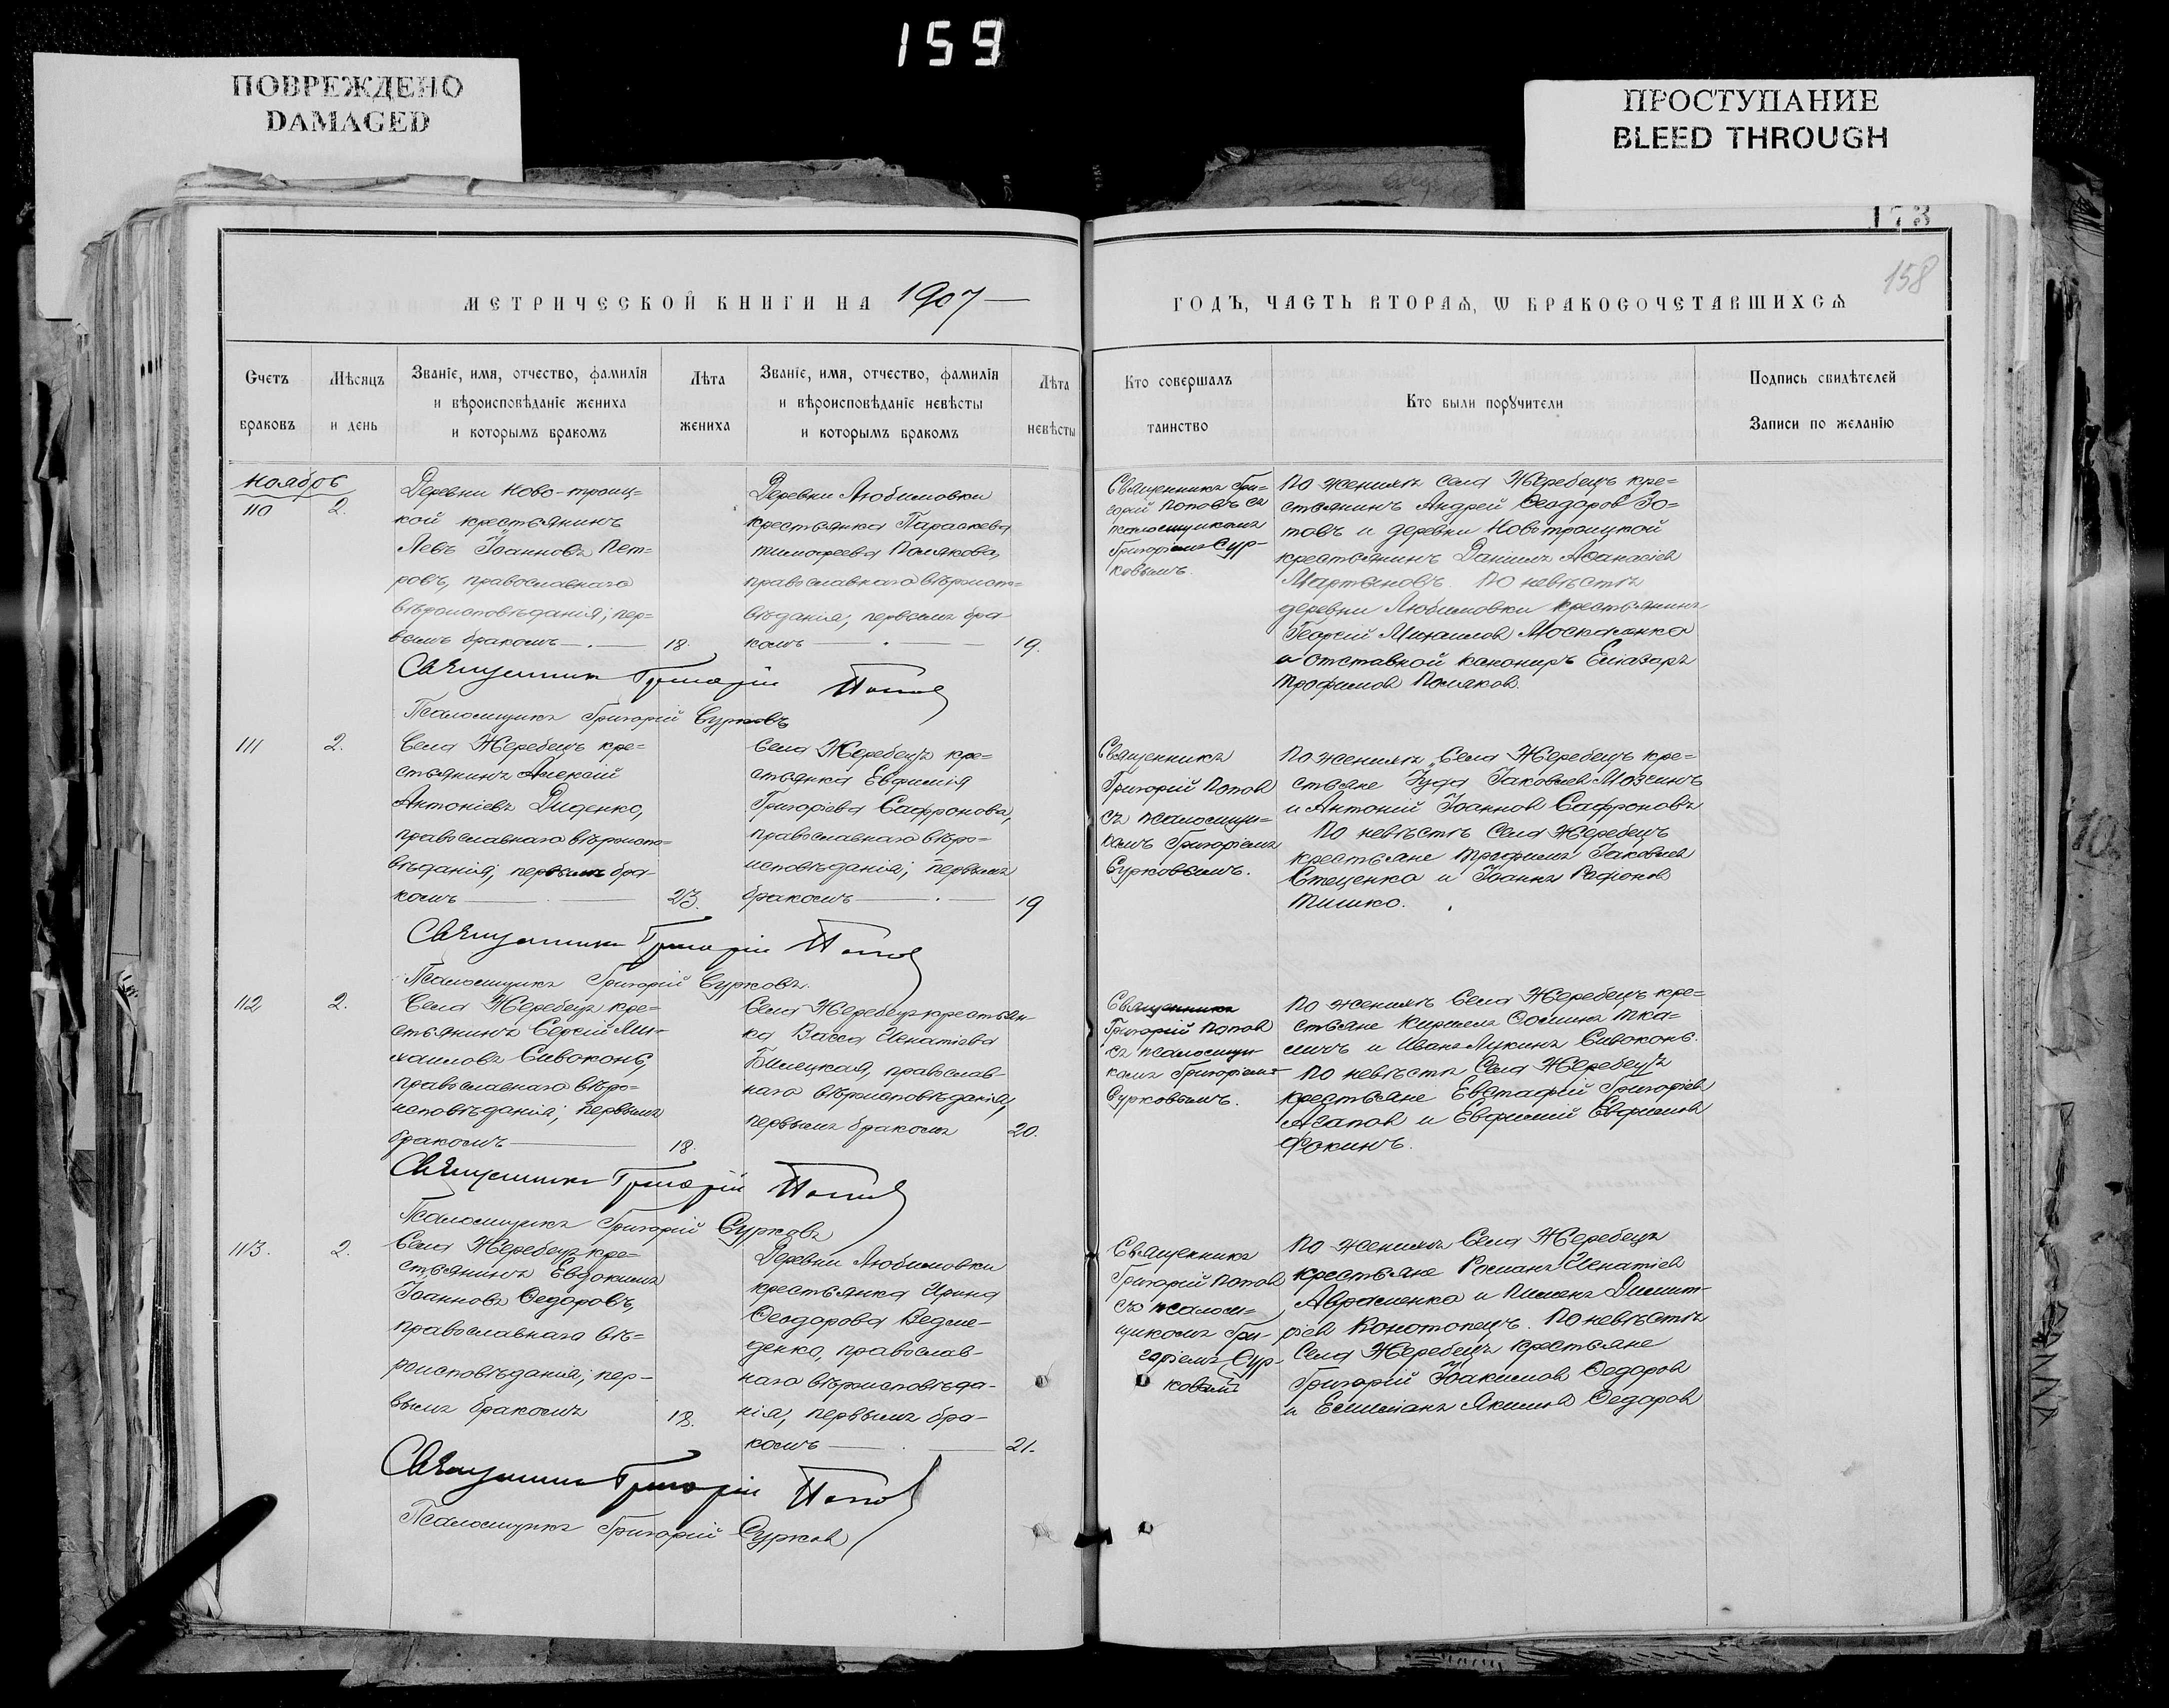 159
ПОВРЕЖДЕНО
DAMAGED
ПРОСТУПАНИЕ
BLEED THROUGH
173
158
МЕТРИЧЕСКОЙ КНИГИ НА 1907
ГОДЪ, ЧАСТЬ ВТОРАЯ, Ѡ БРАКОСОЧЕТАВШИХСѦ
Счетъ
браковъ
Мѣсяцъ
и день
Званіе, имя, отчество, фамилія
и вѣроисповѣданіе жениха
и которымъ бракомъ
Лѣта
жениха
Званіе, имя, отчество, фамилія
и вѣроисповѣданіе невѣсты
и которымъ бракомъ
Лѣта
невѣсты
Кто совершалъ
таинство
Кто были порꙋчители
Подпись свидѣтелей
Записи по желанію
Ноябрь
110
2.
Деревни Ново-троиц=
кой крестьянинъ
Левъ Іоанновъ Пет=
ровъ, православнаго
вѣроисповѣданія; пер=
вымъ бракомъ
18.
Деревни Любимовки
крестьянка Параскева
Тимофеева Полякова,
православнаго вѣроиспо=
вѣданія; первымъ бра
комъ
19.
Священникъ Гри=
горій Поповъ съ
псаломщикомъ
Григоріемъ Сур-
ковымъ.
По женихѣ села Жеребецъ кре=
стьянинъ Андрей Ѳеодоров Зо=
товъ и деревни Новотроицкой
крестьянинъ Даніилъ Аѳанасіев
Мартыновъ. По невѣстѣ
деревни Любимовки крестьянинъ
Георгій Михаилов Москаленко
и отставной канониръ Еліазаръ
Трофимов Поляков.
Священникъ Григорій Попов
Псаломщикъ Григорій Сурковъ
111
2.
Села Жеребецъ кре=
стьянинъ Алексій
Антоніевъ Диденко,
православнаго вѣроиспо=
вѣданія; первымъ бра-
комъ
23.
Села Жеребецъ кре=
стьянка Евфимія
Григоріева Сафронова,
православнаго вѣро=
исповѣданія; первымъ
бракомъ
19
Священникъ
Григорій Попов
съ псаломщи=
комъ Григоріемъ
Сурковымъ.
По женихѣ Села Жеребецъ кре=
стьяне Іуда Іаковлев Мозсинъ
и Антоній Іоаннов Сафроновъ
По невѣстѣ Села Жеребецъ
крестьяне Трофимъ Іаковлев
Стеценко и Іоаннъ Рафонов
Тишко.
Священникъ Григорій Попов
Псаломщикъ Григорій Сурковъ.
112
2.
Села Жеребецъ кре=
стьянинъ Сергій Ми-
хаиловъ Сивоконь,
православнаго вѣро=
исповѣданія; первымъ
бракомъ
18.
Села Жеребецъ крестьян-
ка Васса Игнатіева
Билецкая, православ-
наго вѣроисповѣданія;
первымъ бракомъ
20.
Священникъ
Григорій Попов
съ псаломщи
комъ Григоріемъ
Сурковымъ.
По женихѣ Села Жеребецъ кре=
стьяне Кириллъ Ѳоминъ Тка=
личъ и Иванъ Лукинъ Сивоконь.
По невѣстѣ Села Жеребецъ
крестьяне Евстафій Григоріев
Агапов и Евфимій Евфимов
Фокинъ.
Священникъ Григорій Попов
Псаломщикъ Григорій Сурковъ
113.
2.
Села Жеребецъ кре=
стьянинъ Евдокимъ
Іоанновъ Ѳедоровъ,
православнаго вѣ=
роисповѣданія; пер-
вымъ бракомъ
18.
Деревни Любимовки
крестьянка Ирина
Ѳеодорова Ведме-
денко, православ-
наго вѣроисповѣда-
нія; первымъ бра-
комъ
21.
Священникъ
Григорій Попов
съ псалом-
щикомъ Гри-
горіемъ Сур-
ковымъ
По женихѣ Села Жеребецъ
крестьяне Романъ Игнатіев
Авраменко и Пименъ Димит-
ріев Конотопецъ. По невѣстѣ
Села Жеребецъ крестьяне
Григорій Іоакимов Ѳедоров
и Емиліанъ Якимов Ѳедоров
Священникъ Григорій Попов
Псаломщикъ Григорій Сурков